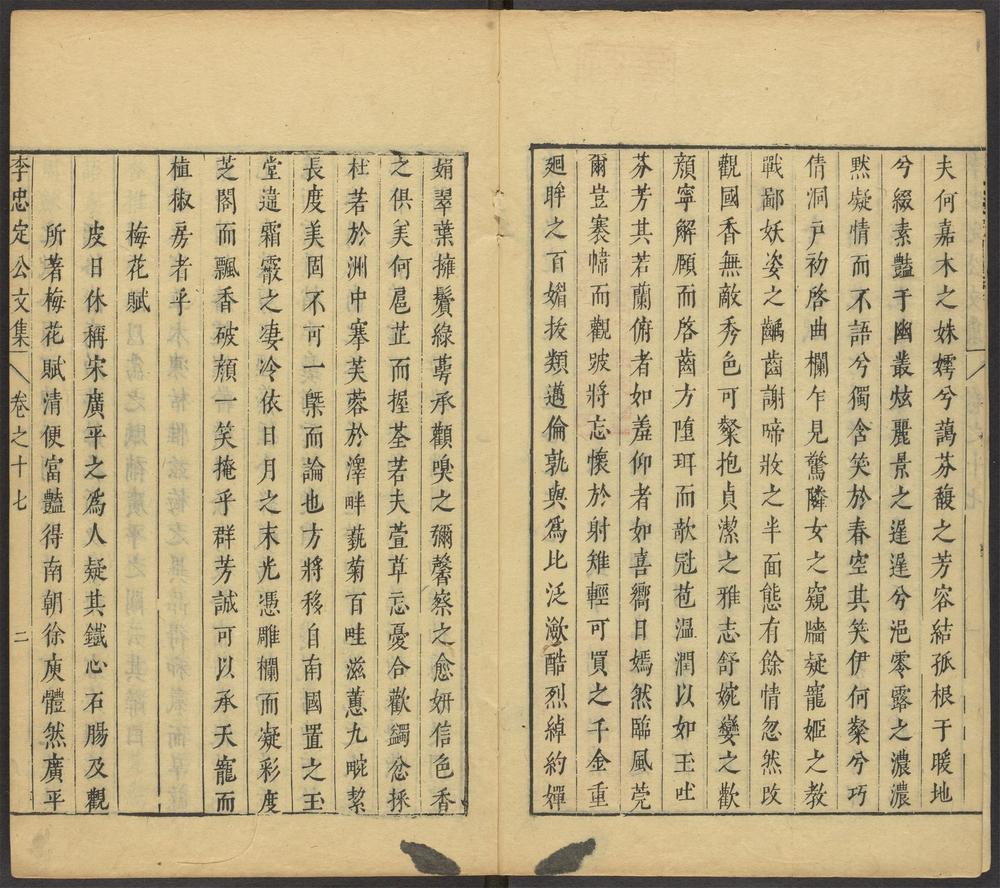 夫何嘉木之姝嫮兮藹芬馥之芳容結孤根于暖地
兮綴素豔于幽叢炫麗景之遲遲兮浥零露之濃濃
黙凝情而不語兮獨含笑於春空其笑伊何粲兮巧
倩洞戸初啓曲欄乍見驚隣女之窺牆疑寵姬之教
戰鄙妖姿之齲齒謝啼妝之半面態有餘情忽然改
觀國香無敵秀色可粲抱貞潔之雅志舒婉孌之歡
顔寧解頥而啓齒方墮珥而欹冠苞溫潤以如玉吐
芬芳其若蘭俯者如羞仰者如喜嚮日嫣然臨風莞
爾豈褰幃而觀跛將忘懷於射雉輕可買之千金重
廻眸之百媚拔類邁倫孰與爲比泛瀲酷烈綽約嬋
娟翠葉擁鬢綠萼承顴嗅之彌馨察之愈妍信色香
之俱美何扈芷而握荃若夫萱草忘憂合歡蠲忿採
杜若於洲中搴芙蓉於澤畔蓺菊百畦滋蕙九畹絜
長度美固不可一槩而論也方將移自南國置之玉
堂違霜霰之凄冷依日月之末光憑雕欄而凝彩度
芝閣而飄香破顔一笑掩乎群芳誠可以承天寵而
植椒房者乎
梅花賦
皮日休稱宋廣平之爲人疑其鐵心石腸及觀
所著梅花賦清便富豔得南朝徐庾體然廣平
李忠定公文集 卷之十七 二